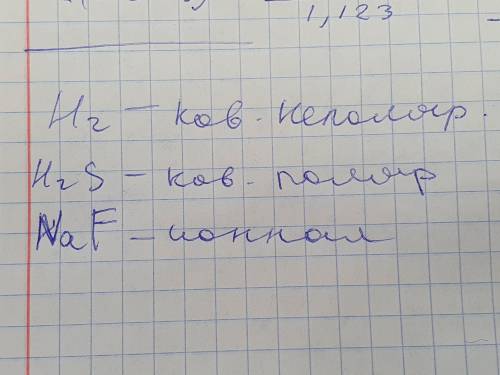 1,123
H₂ — ков. неполяр.
H₂S — ков. поляр
NaF — ионная